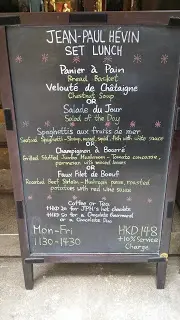 JEAN-PAUL HÉVIN
SET LUNCH
Panier à Pain
Bread Basket
Velouté de Châtaigne
Chestnut Soup
OR
Salade du Jour
Salad of the Day
Spaghettis aux fruits de mer
Seafood Spaghetti - Shrimp, mussel, squid, fish with white sauce
OR
Champignon à Bourré
Grilled Stuffed Jumbo Mushroom - Tomato concasse,
parmesan with mixed leaves
OR
Faux Filet de Boeuf
Roasted Beef Sirloin - Mushroom puree, roasted
potatoes with red wine sauce
Coffee or Tea
+HKD 20 for JPH's hot chocolate
+HKD 50 for a Chocolate Gourmand
or a Chocolate Duo
Mon-Fri
1130-1430
HKD 148
+10% Service
Charge